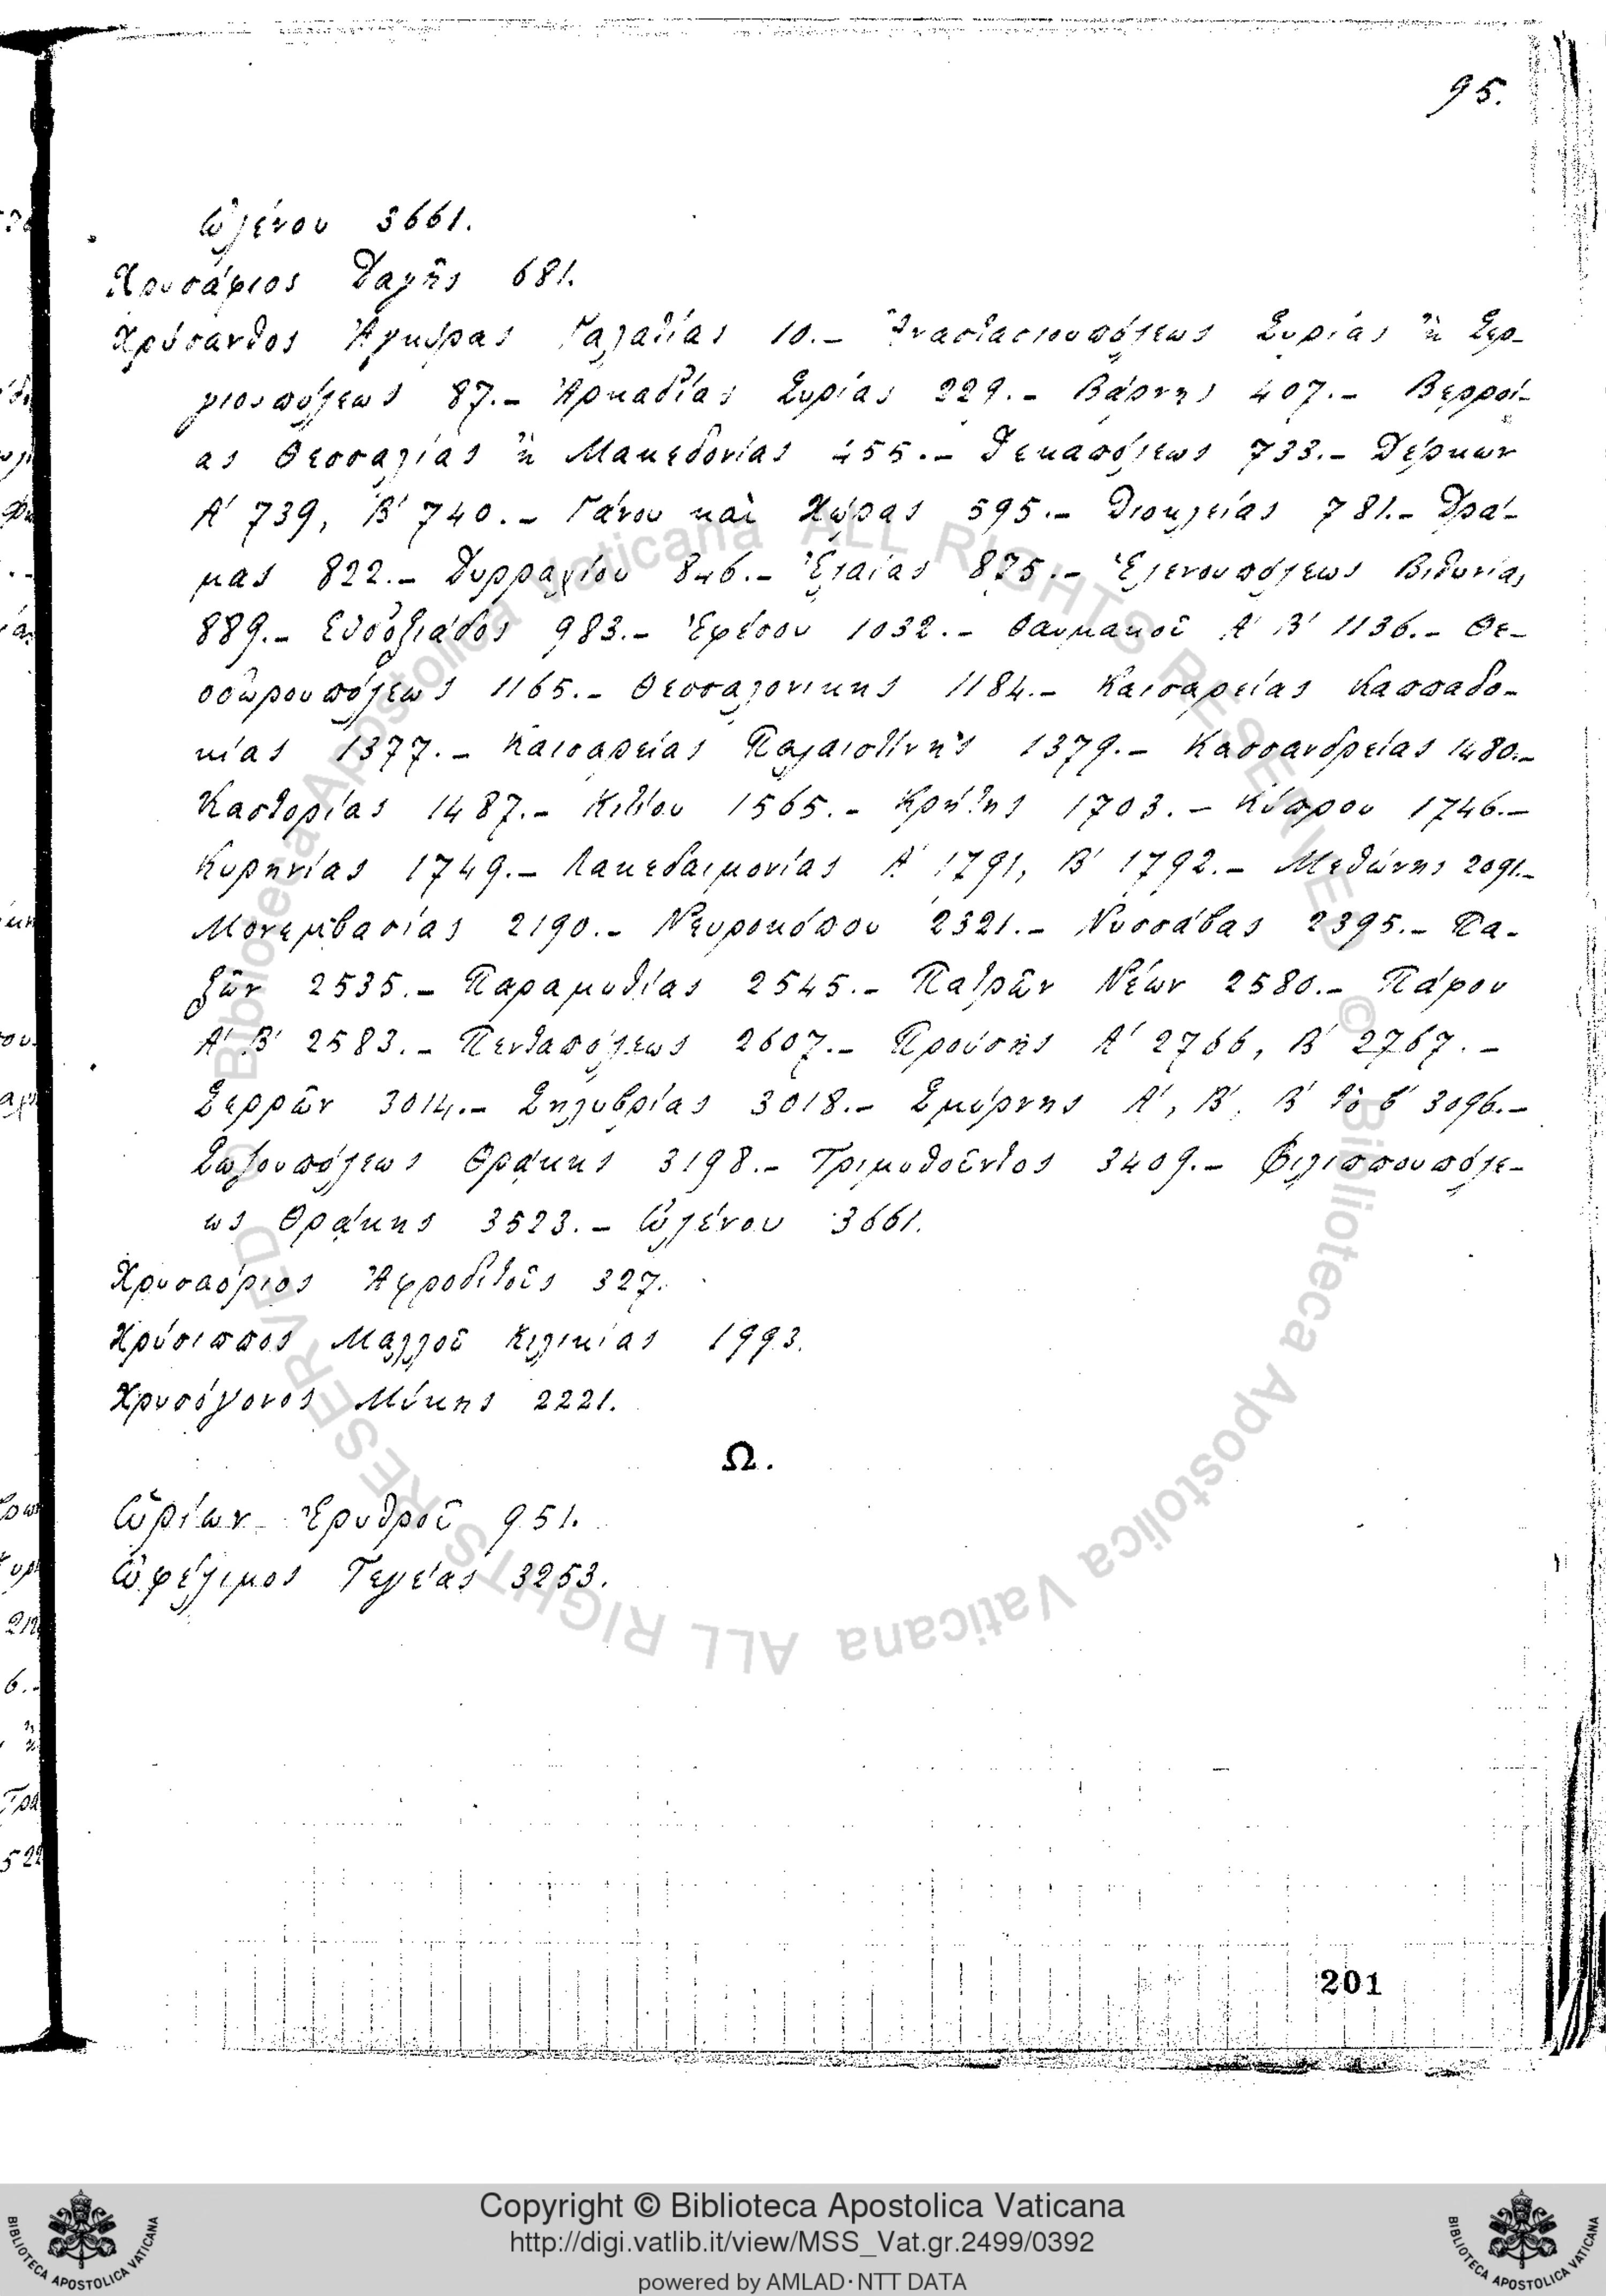 95.
Ὠλένου 3661.
Χρυσάφιος Δαγῆς 681.
Χρύσανθος Ἀγκύρας Γαλατίας 10.- Ἀναστασιουπόλεως Συρίας ἢ Σερ-
γιουπόλεως 87.- Ἀρκαδίας Συρίας 229.- Βάρνης 407.- Βερροί-
ας Θεσσαλίας ἢ Μακεδονίας 455.- Δεκαπόλεως 733.- Δέρκων
Α΄ 739, Β΄ 740.- Γάνου καὶ Χώρας 595.- Διοκλείας 781.- Δρά-
μας 822.- Δυρραχίου 846.- Ἐλαίας 875.- Ἑλενουπόλεως Βιθυνίας
889.- Εὐδοξιάδος 983.- Ἐφέσου 1032.- Θαυμακοῦ Α΄ Β΄ 1136.- Θε-
οδωρουπόλεως 1165.- Θεσσαλονίκης 1184.- Καισαρείας Καππαδο-
κίας 1377.- Καισαρείας Παλαιστίνης 1379.- Κασσανδρείας 1480.-
Καστορίας 1487.- Κιτίου 1565.- Κρήτης 1703.- Κύπρου 1746.-
Κυρηνίας 1749.- Λακεδαιμονίας Α΄ 1791, Β΄ 1792.- Μεθώνης 2091.-
Μονεμβασίας 2190.- Νευροκόπου 2321.- Νυσσάβας 2395.- Πα-
ξῶν 2535.- Παραμυθίας 2545.- Πατρῶν Νέων 2580.- Πάρου
Α΄ Β΄ 2583.- Πενταπόλεως 2607.- Προύσης Α΄ 2766, Β΄ 2767.-
Σερρῶν 3014.- Σηλυβρίας 3018.- Σμύρνης Α΄, Β΄, Β΄ τὸ β΄ 3096.-
Σωζουπόλεως Θράκης 3198.- Τριμυθοῦντος 3409.- Φιλιππουπόλε-
ως Θράκης 3523.- Ὠλένου 3661.
Χρυσαόριος Ἀφροδιτοῦς 327.
Χρύσιππος Μαλλοῦ Κιλικίας 1993.
Χρυσόγονος Μύκης 2221.
Ω.
Ὠρίων Ἐρυθροῦ 951.
Ὠφέλιμος Τεγέας 3253.
201
Copyright © Biblioteca Apostolica Vaticana
http://digi.vatlib.it/view/MSS_Vat.gr.2499/0392
powered by AMLAD·NTT DATA
BIBLIOTECA APOSTOLICA VATICANA
BIBLIOTECA APOSTOLICA VATICANA
© Biblioteca Apostolica Vaticana ALL RIGHTS RESERVED
© Biblioteca Apostolica Vaticana ALL RIGHTS RESERVED